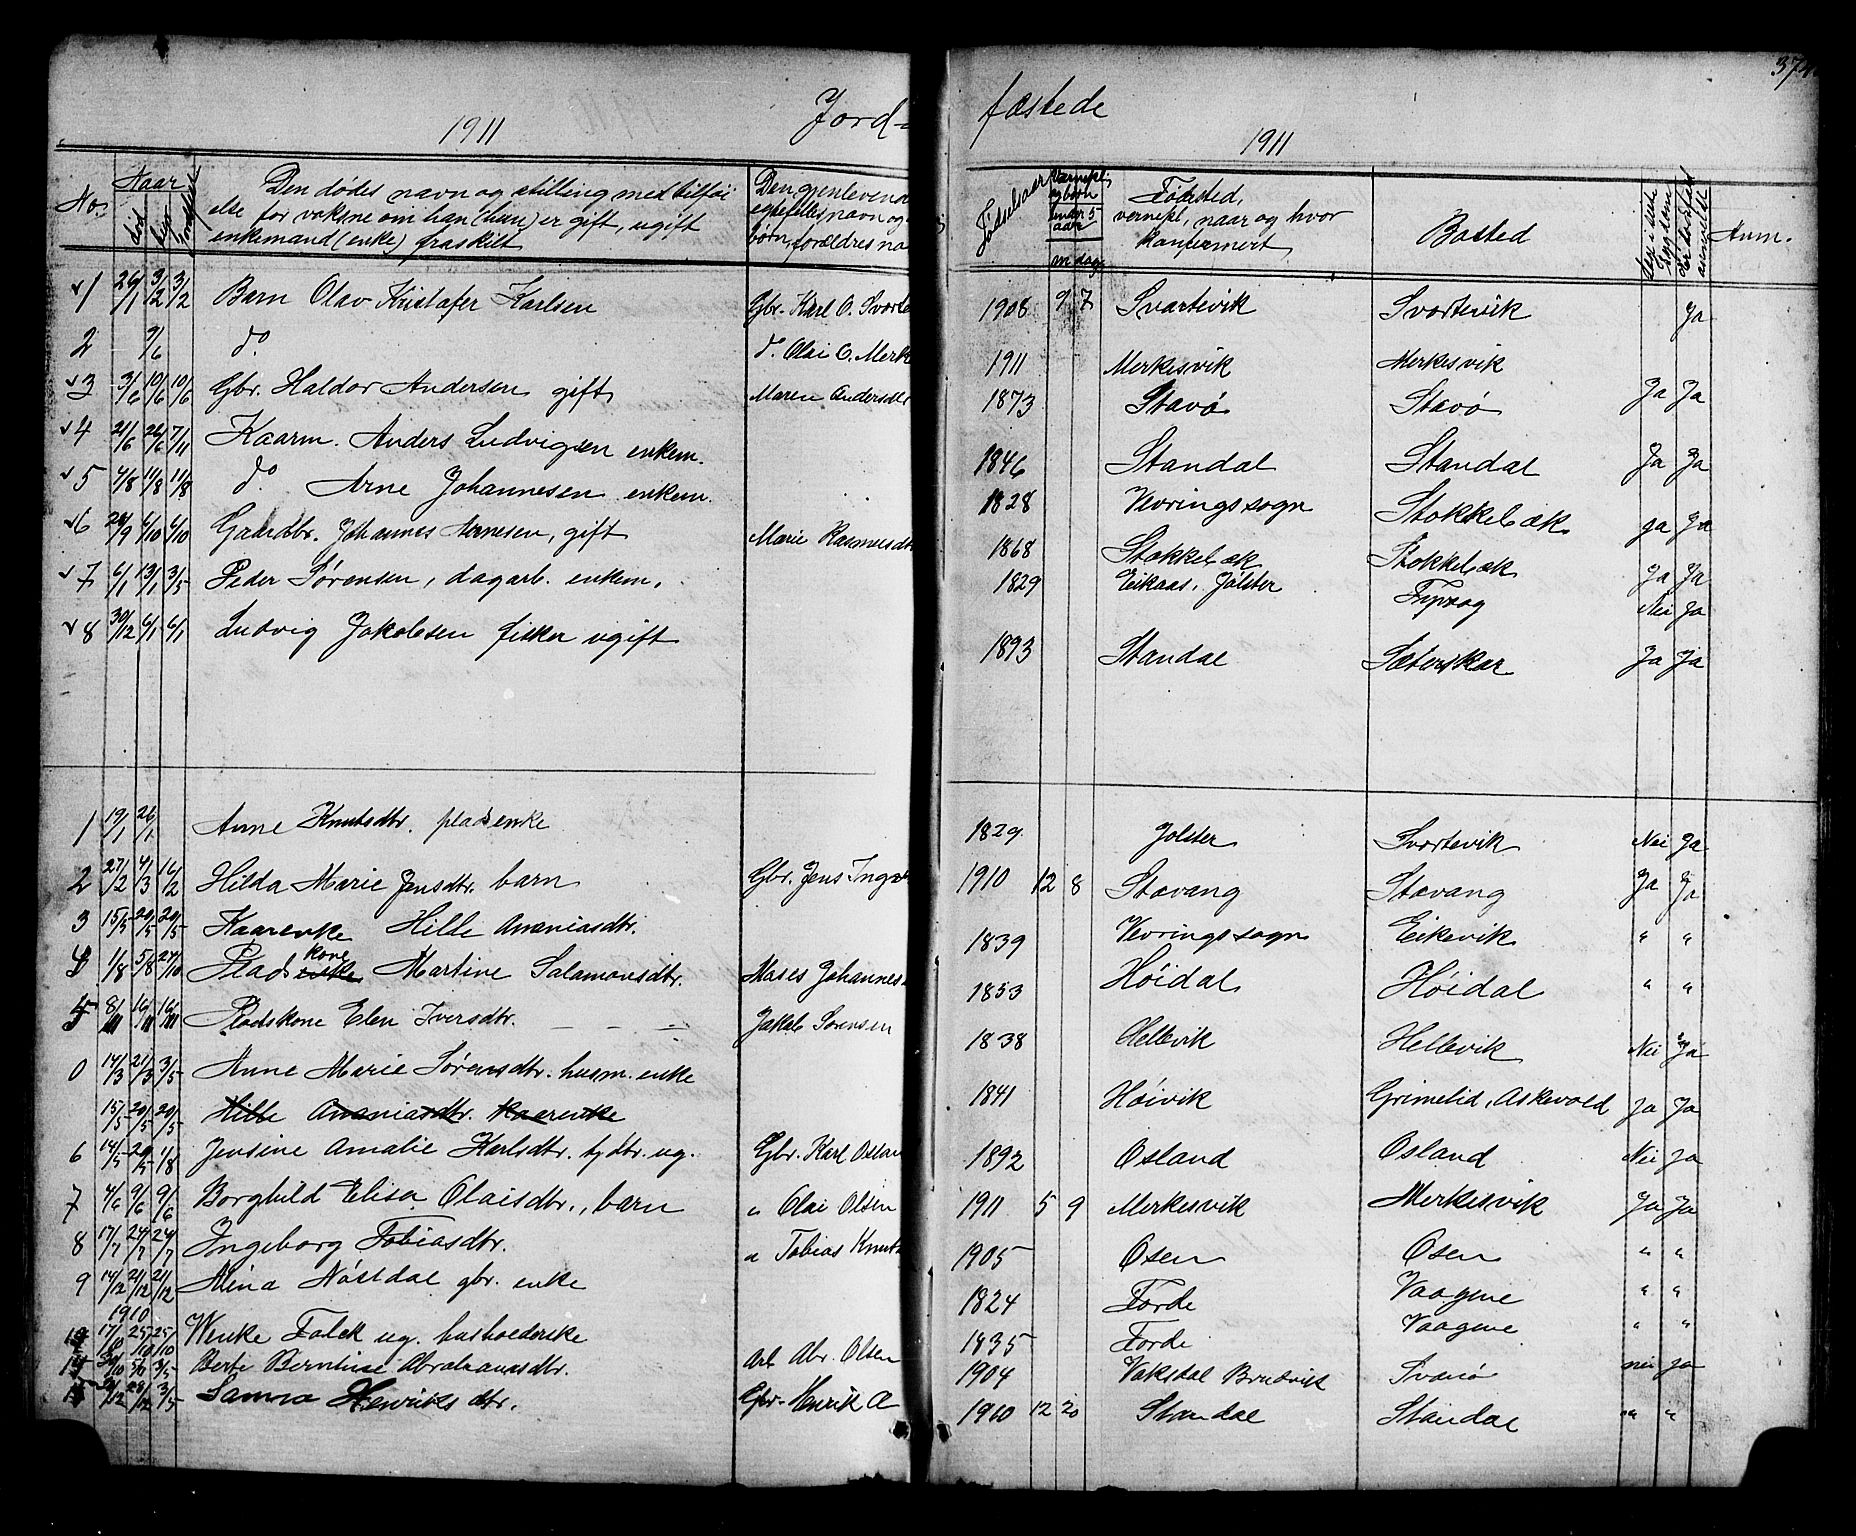 374
1911 Jord= fæstede 1911
No. Naar Den dødes navn og stilling med tilføi Den gjenleven Fødselsaar Værnepl. Fødested, Bosted Anm.
død begr. else for voksne om han (hun) er gift, ugift egtefelles navn og og børn vernepl, naar og hvor
enkemand (enke) fraskilt børn, forældres na under 5 aar konfermert,
m dag
1 26/1 3/2 3/2 Barn Olav Kristafer Karlsen Gbr. Karl O. Svorte 1908 9 7 Svartevik Svortevik Ja
2 9/6 do do Olai O. Merk 1911 Merkesvik Merkesvik
3 3/6 10/6 10/6 Gbr. Haldor Andersen gift Maren Andersdtr 1873 Stavø Stavø Ja Ja
4 21/6 26/6 7/11 Kaarm. Anders Ludvigsen enkem. 1846 Standal Standal Ja Ja
5 4/8 11/8 11/8 do Arne Johannesen enkem. 1828 Vevringssogn Stokkebæk ja Ja
6 28/9 6/10 6/10 Gaardbr. Johannes Arnesen, gift Marie Rasmusdt 1868 Stokkebæk Stokkebæk Ja Ja
7 6/1 13/1 3/5 Peder Sørensen, dagarb. enkem. 1829 Eikaas, Jølster Nei Ja
8 30/12 6/1 6/1 Ludvig Jakobsen fisker ugift 1893 Standal Sæterskar Ja Ja
1 19/1 26/1 Anne Knutsdtr. pladsenke 1829 Jolster Svortevik Nei Ja
2 27/2 4/3 16/2 Hilda Marie Jensdtr. barn Gbr. Jens Inga 1910 12 8 Stavang Stavang Ja Ja
3 15/5 20/5 20/5 Kaarenke Hille Ananiasdtr. 1839 Vevringssogn Eikevik " "
4 1/8 5/8 27/10 Plads enke kone Martine Salamonsdtr. Moses Johannes 1853 Høidal Høidal " "
5 8/11 16/11 16/11 Pladskone Elen Iversdtr. — — — Jakob Sørensen 1838 Hellevik Hellevik Nei Ja
0 14/3 21/3 3/5 Anne Marie Sørensdtr. husm. enke 1841 Høivik Grimelid, Askevold ja Ja
15/5 20/5 20/5 Hille Ananiasdtr. Kaarenke
6 14/5 20/5 1/8 Jensine Amalie Karlsdtr. tj. dtr. ug. Gbr. Karl Oslan 1892 Osland Osland Nei Ja
7 4/6 9/6 9/6 Borghild Elisa Olaisdtr., barn " Olai Olsen 1911 5 9 Merkesvik Merkesvik Ja Ja
8 17/7 24/7 24/7 Ingeborg Tobiasdtr. " Tobias Knut 1905 Osen Osen " "
9 14/12 21/12 21/12 Mina Nøstdal gbr. enke 1824 Førde Vaagene " "
1910
17/10 25/10 25/10 Wenke Falck ug. husholderske 1835 Førde Vaagene " "
3/5 Berte Berntine Abrahamsdtr. Arb. Abr. Olsen 1904 Vaksdal Bruvik Svanø nei ja
28/12 3/5 Sanna Henriks dtr. Gbr. Henrik 1910 12 20 Standal Standal " "